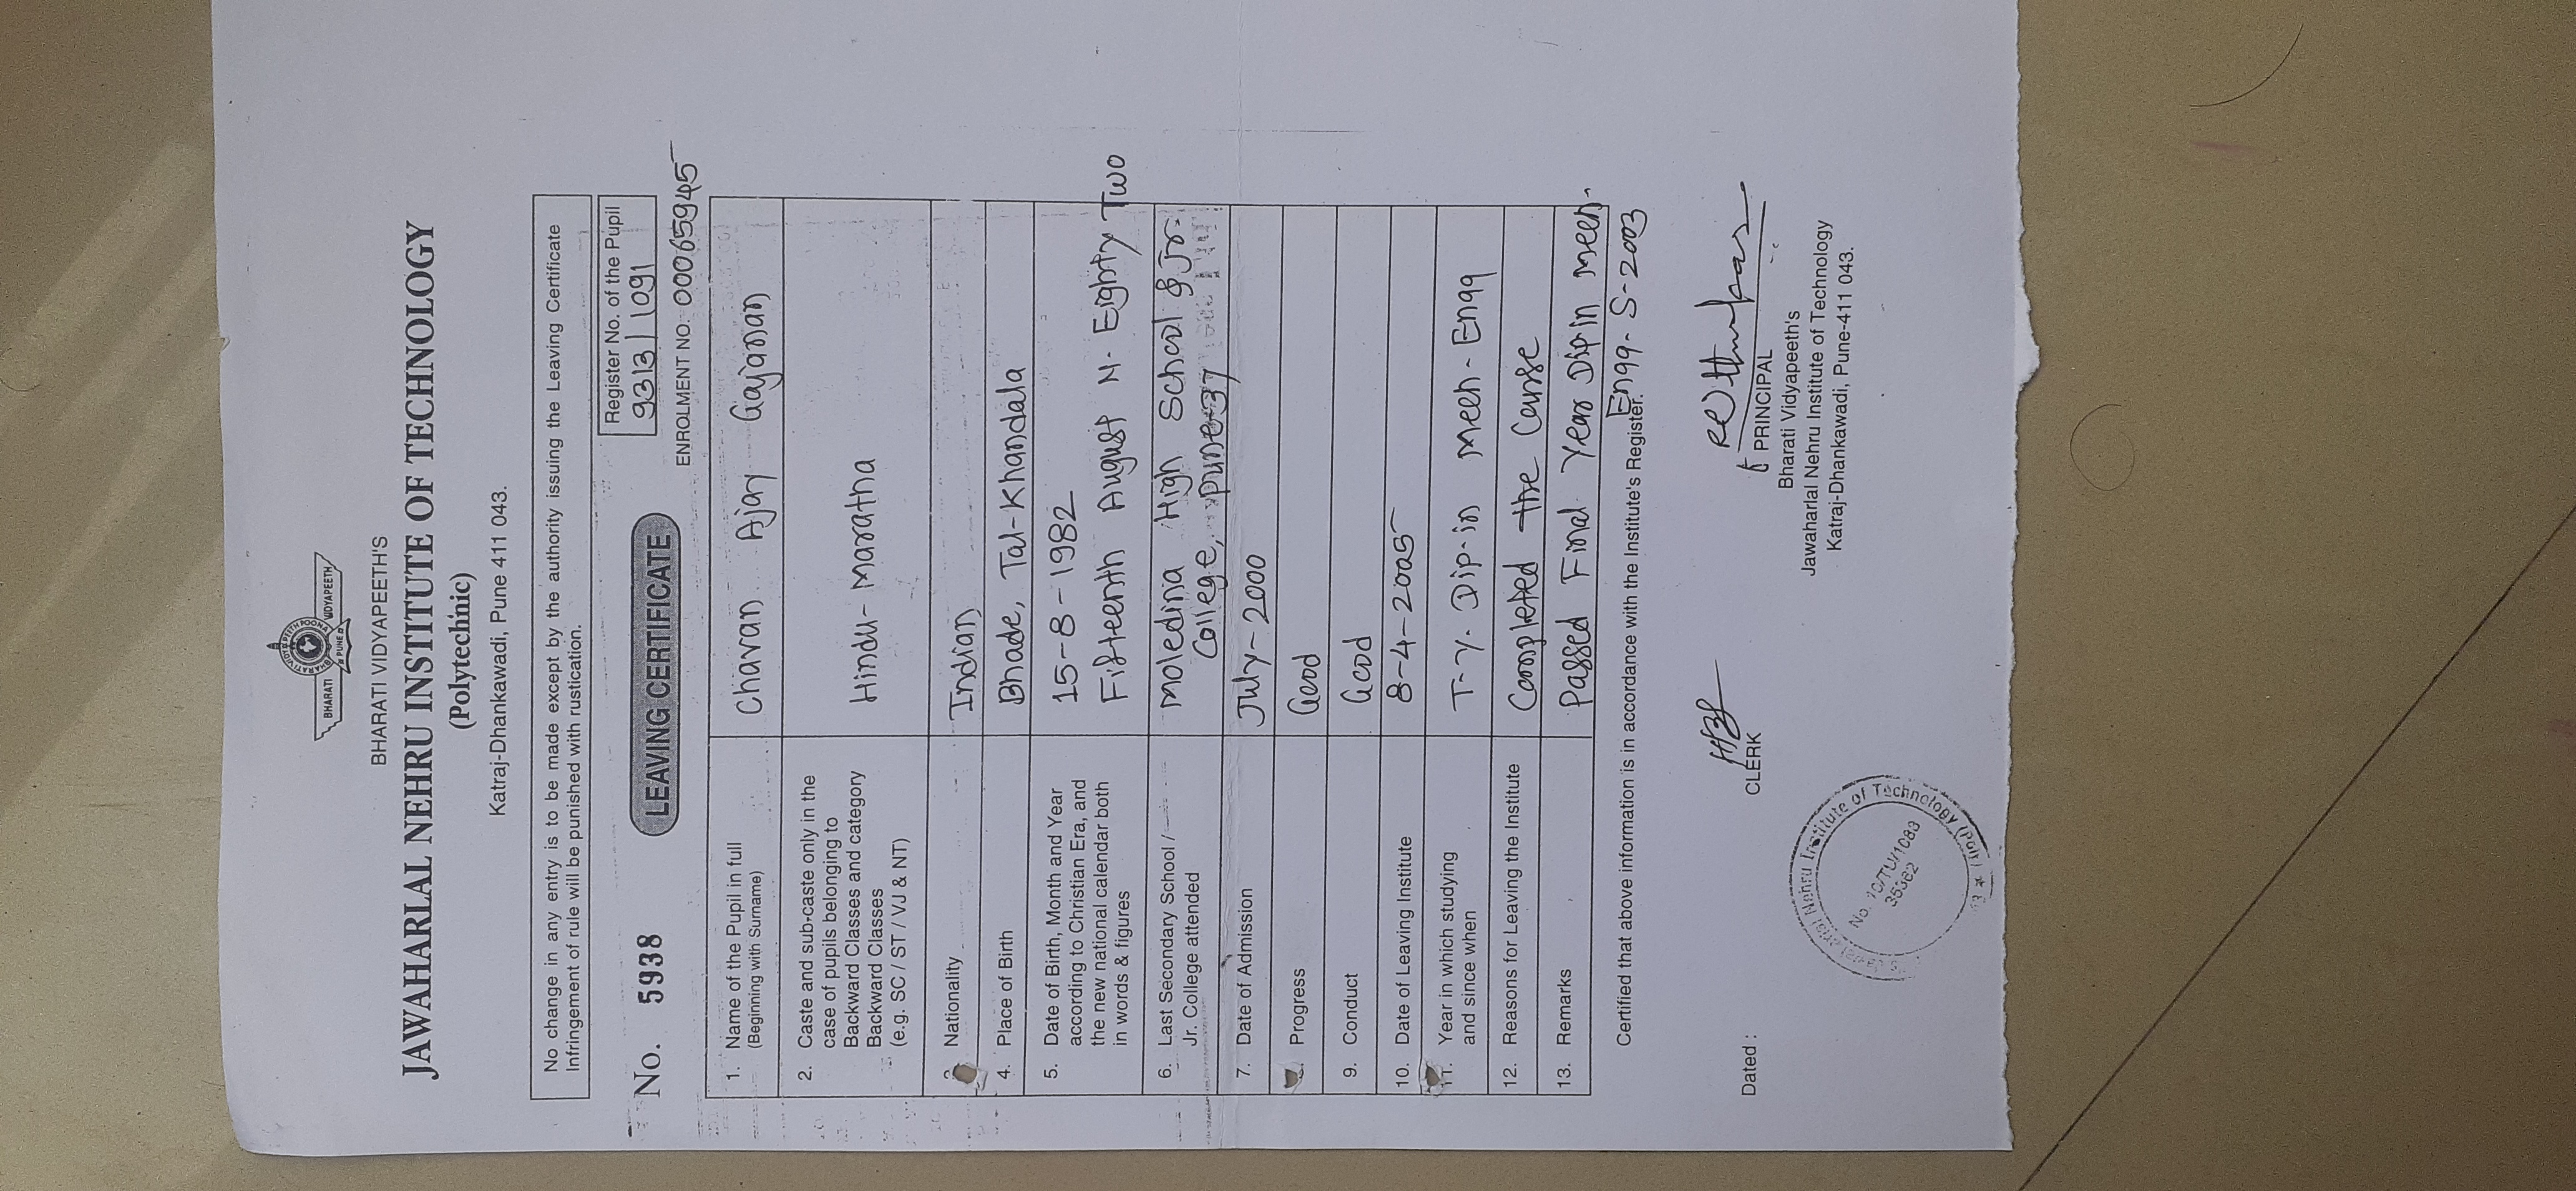 BHARATI VIDYAPEETH
PUNE
BHARATI VIDYAPEETH'S
JAWAHARLAL NEHRU INSTITUTE OF TECHNOLOGY
(Polytechnic)
Katraj-Dhankawadi, Pune 411 043.
No change in any entry is to be made except by the authority issuing the Leaving Certificate
Infringement of rule will be punished with rustication.
No. 5938
LEAVING CERTIFICATE
Register No. of the Pupil
9313/1091
ENROLMENT NO: 00065945
1. Name of the Pupil in full
(Beginning with Surname)
Chavan Ajay Gajanan
2. Caste and sub-caste only in the
case of pupils belonging to
Backward Classes and category
Backward Classes
(e.g. SC / ST / VJ & NT)
Hindu - Maratha
Nationality Indian
4. Place of Birth Bhade, Tal-Khandala
5. Date of Birth, Month and Year
according to Christian Era, and
the new national calendar both
in words & figures
15-8-1982
Fifteenth August N. Eighty Two
6. Last Secondary School /
Jr. College attended
Moledina High School & Jr.
College, Pune-37
7. Date of Admission July-2000
Progress Good
9. Conduct Good
10. Date of Leaving Institute 8-4-2005
11. Year in which studying
and since when
T.Y. Dip-in Mech-Engg
12. Reasons for Leaving the Institute Completed the Course
13. Remarks Passed Final Year Dip in Mech.
Engg. S-2003
Certified that above information is in accordance with the Institute's Register.
Dated :
CLERK
PRINCIPAL
Bharati Vidyapeeth's
Jawaharlal Nehru Institute of Technology
Katraj-Dhankawadi, Pune-411 043.
Nehru Institute of Technology (Poly
35362